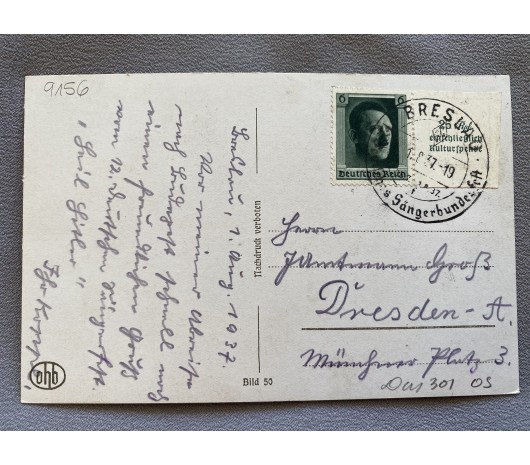 9156
Breslau, 1. Aug. 1937.
Vor meiner Abreise
noch schnell
einen freundlichen Gruß
vom 12. Deutschen Sängerfest.
"Heil Hitler"
Nachdruck verboten
Bild 50
ohb
6
Deutsches Reich
25 Rpf.
einschließlich
Kulturspende
BRESLAU
.8.37.-19
Sängerbundesfest
Herrn
Amtmann Groß
Dresden-A.
Münchner Platz 3.
301 OS